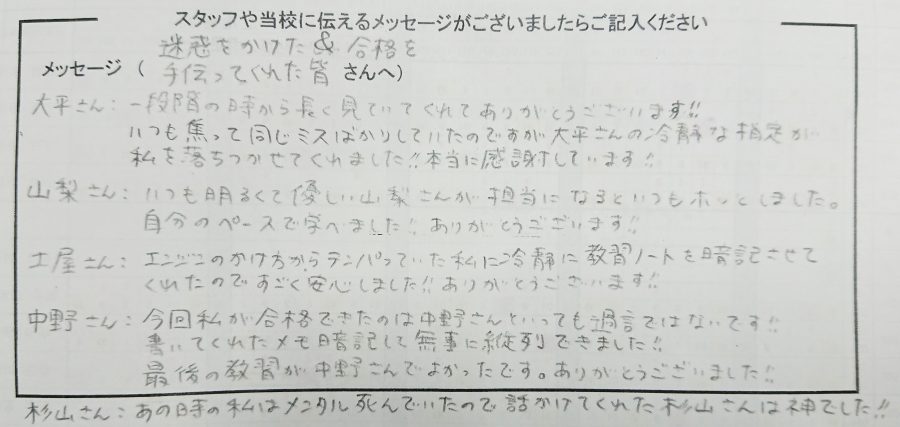 スタッフや当校に伝えるメッセージがございましたらご記入ください
迷惑をかけた&合格を
メッセージ ( 手伝ってくれた皆 さんへ)
大平さん: 一段階の時から長く見ていてくれてありがとうございます!!
いつも焦って同じミスばかりしていたのですが大平さんの冷静な指定が
私を落ちつかせてくれました!!本当に感謝しています!!
山梨さん: いつも明るくて優しい山梨さんが担当になるといつもホッとしました。
自分のペースで学べました!!ありがとうございます!!
土屋さん: エンジンのかけ方からテンパっていた私に冷静に教習ノートを暗記させて
くれたのですごく安心しました!!ありがとうございます!!
中野さん: 今回私が合格できたのは中野さんといっても過言ではないです!!
書いてくれたメモ暗記して無事に縦列できました!!
最後の教習が中野さんでよかったです。ありがとうございました!!
杉山さん: あの時の私はメンタル死んでいたので話かけてくれた杉山さんは神でした!!